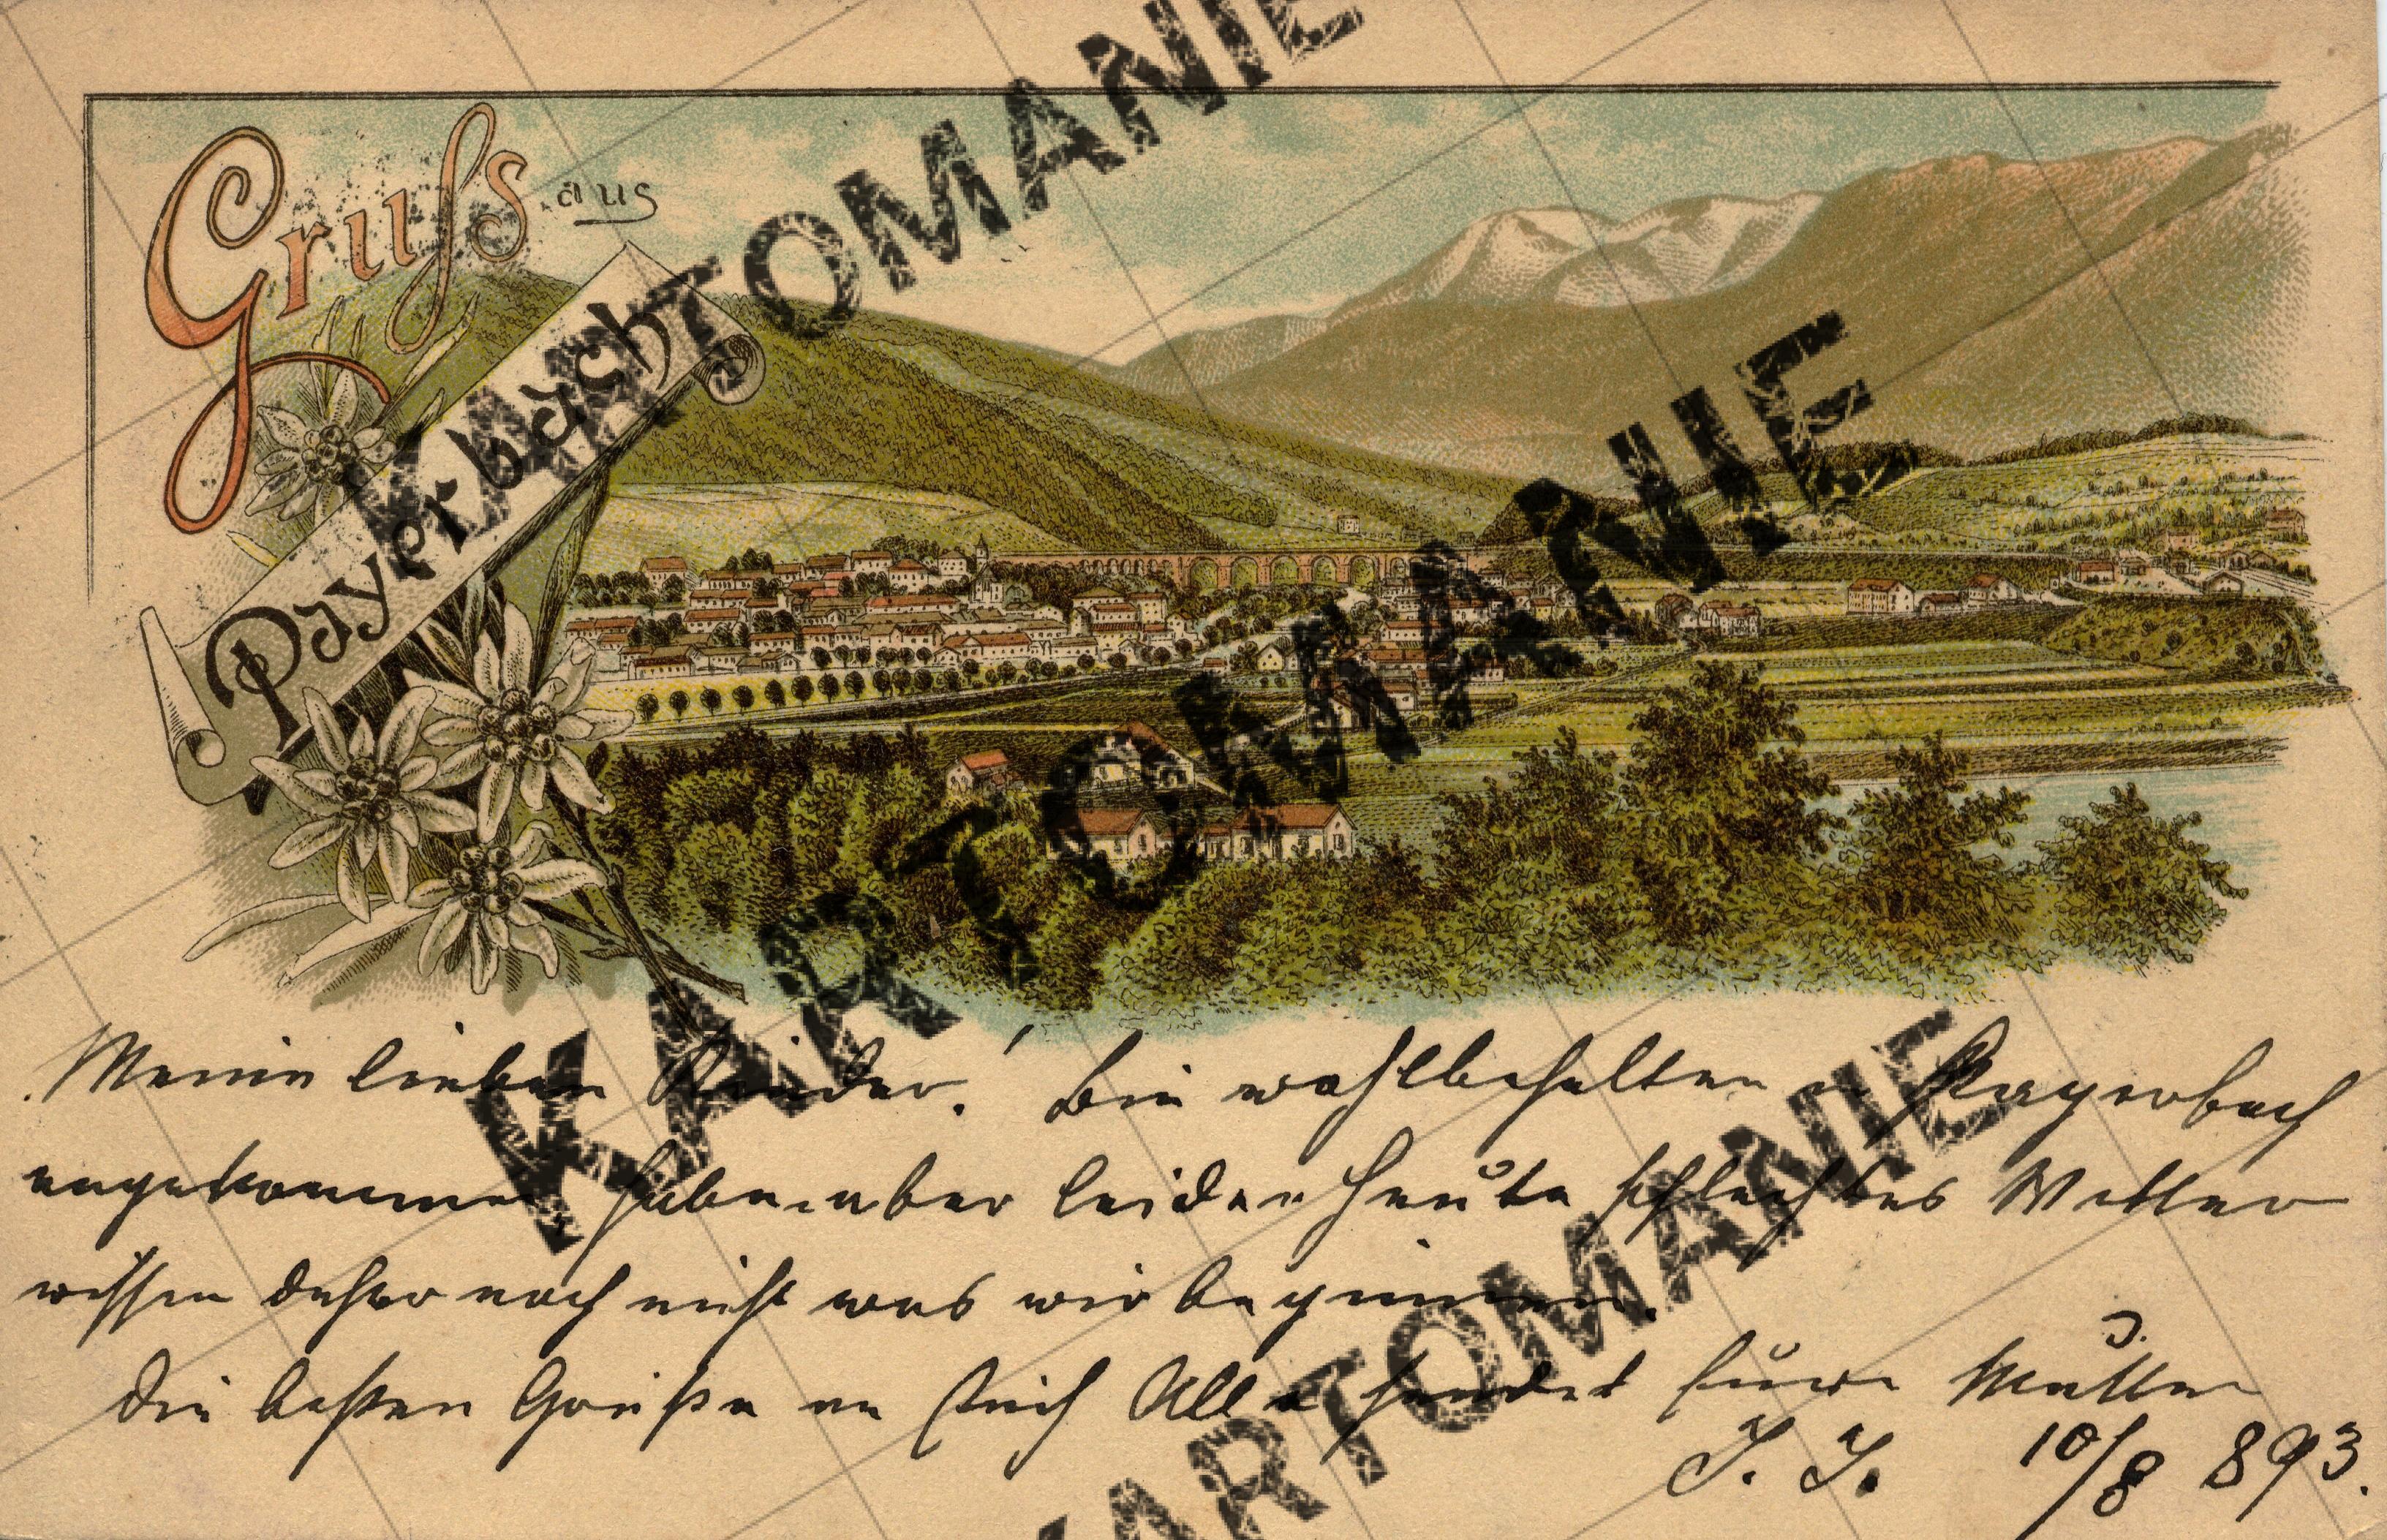 Gruß aus
Payerbach
Meine lieben Kinder! Bin wohlbehalten in Payerbach
angekommen, haben aber leider heute schlechtes Wetter
wissen daher noch nicht was wir beginnen.
Die besten Grüße an Euch Alle sendet Eure Mutter
J. J. 10/8 893.
KARTOMANIE
KARTOMANIE
KARTOMANIE